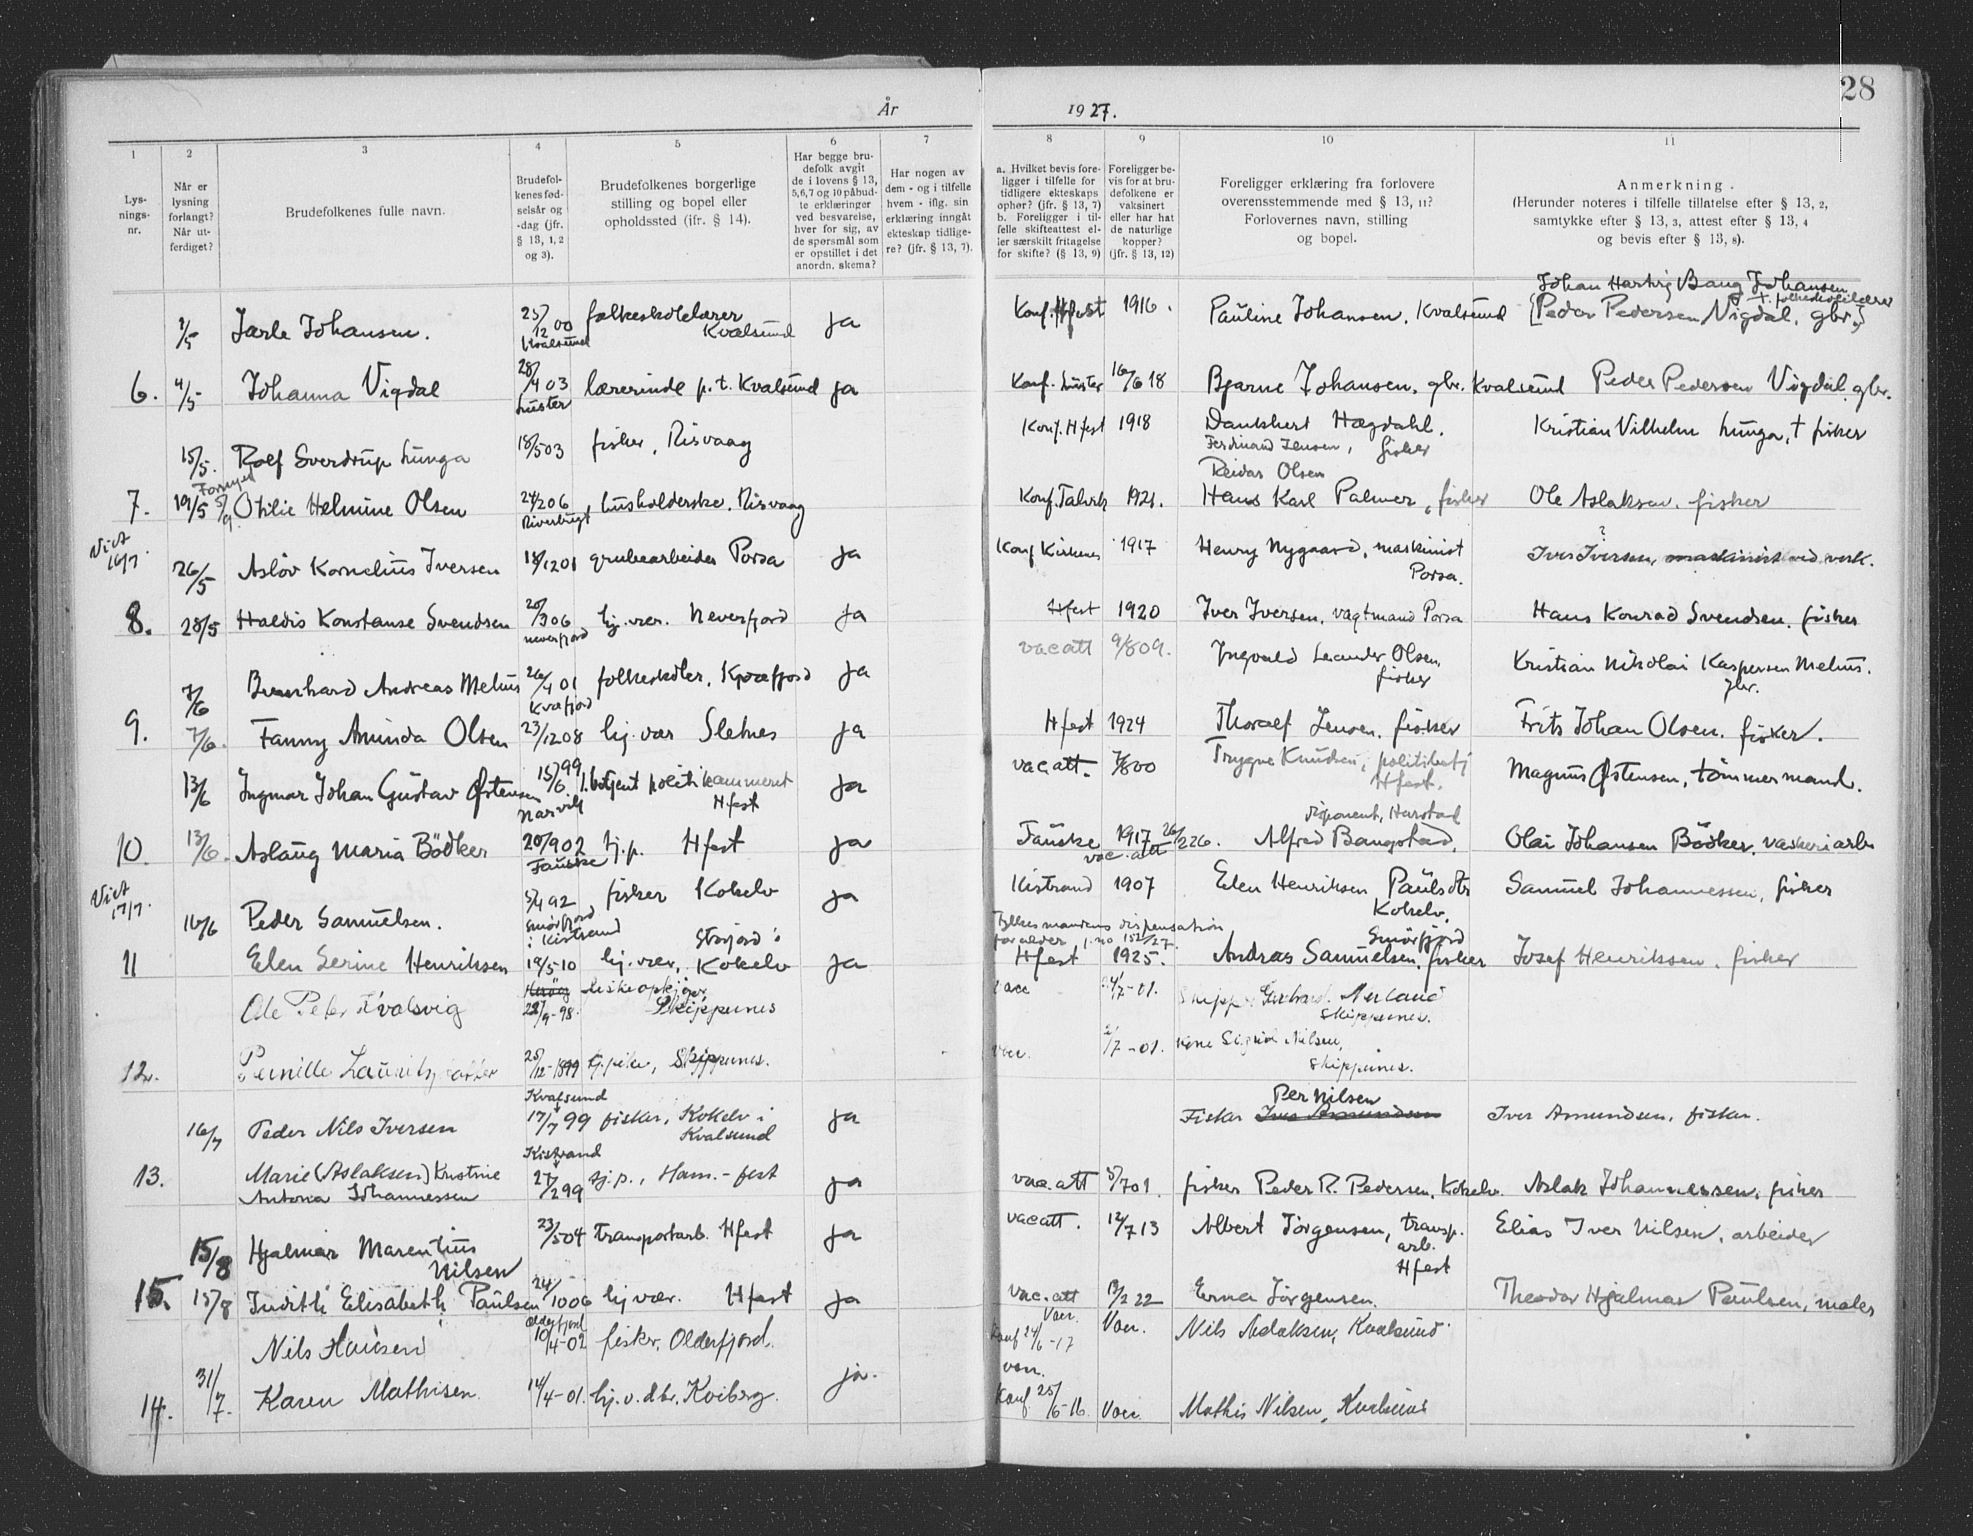 28
År 1927.
1 2 3 4 5 6 7 8 9 10 11
Lysningsnr.
Når er lysning forlangt? Når utferdiget?
Brudefolkenes fulle navn.
Brudefolkenes fødselsår og -dag (jfr. § 13, 1, 2 og 3).
Brudefolkenes borgerlige stilling og bopel eller opholdssted (ifr. § 14).
Har begge brudefolk avgit de i lovens § 13, 5,6,7 og 10 påbudte erklæringer ved besvarelse, hver for sig, av de spørsmål som er opstillet i det anordn. skema?
Har nogen av dem - og i tilfelle hvem - iflg. sin erklæring inngått ekteskap tidligere? (jfr. § 13, 7).
a. Hvilket bevis foreligger i tilfelle for tidligere ekteskaps ophør? (jfr. § 13, 7) b. Foreligger i tilfelle skifteattest eller særskilt fritagelse for skifte? (§ 13, 9)
Foreligger bevis for at brudefolkene er vaksinert eller har hat de naturlige kopper? (jfr. § 13, 12)
Foreligger erklæring fra forlovere overensstemmende med § 13, 11? Forlovernes navn, stilling og bopel.
Anmerkning. (Herunder noteres i tilfelle tillatelse efter § 13, 2, samtykke efter § 13, 3, attest efter § 13, 4 og bevis efter § 13, 8).
Johan Hartvig Bang Johansen
Jarle Johansen. 25/12 00 Kvalsund folkeskolelærer Kvalsund ja Konf. Hfest 1916. Pauline Johansen, Kvalsund [Peder Pedersen Vigdal, gbr.]
6. 4/5 Johanna Vigdal 28/4 03 Luster lærerinde p.t. Kvalsund ja Konf. Luster 16/6 18 Bjarne Johansen, gbr. Kvalsund Peder Pedersen Vigdal, gbr.
15/5. Rolf Sverdrup Lunga 18/5 03 fisker, Risvaag Konf. Hfest 1918 Dankbert Hagdahl. Kristian Vilhelm Lunga, † fisker
Ferdinand Jensen, fisker
Reidar Olsen
7. Fornyet 19/5 5/9 Otilie Helmine Olsen 24/2 06 Riverbugt husholderske, Risvaag Konf. Talvik 1921. Hans Karl Palmer, fisker Ole Aslaksen, fisker
Viet 16/7. 26/5 Asløv Kornelius Iversen 18/12 01 grubearbeider Porsa ja Konf Kirkenes 1917 Henry Nygaard, maskinist Porsa. Iver Iversen,
8. 28/5 Haldis Konstanse Svendsen 20/3 06 Neverfjord hj. vær. Neverfjord ja Hfest 1920 Iver Iversen, vagtmand Porsa Hans Konrad Svendsen, fisker
7/6 Bernhard Andreas Melius 26/4 01 Kvæfjord folkeskolelr, Kvæfjord ja vac att 9/8 09. Ingvald Leander Olsen, fisker Kristian Nikolai Kaspersen Melius. gbr.
9. 7/6. Fanny Aminda Olsen 23/12 08 hj. vær Sletnes ja Hfest 1924 Thoralf Jensen, fisker Frits Johan Olsen, fisker.
13/6 Ingmar Johan Gustav Østensen 15/6 99 Narvik 1. betjent politikammeret Hfest ja vac att. 7/8 00 Trygve Knudsen, politibetj Hfest. Magnus Østensen, tømmermand.
disponent, Harstad
10. 13/6. Aslaug Maria Bödker 20/9 02 Fauske hj. p. Hfest ja Fauske 1917 vac. att 26/2 26. Alfred Bangstad, Olai Johansen Bödker, vaskeriarb
Viet 17/7. 16/6 Peder Samuelsen. 5/4 92 Smørfjord i Kistrand fisker Kokelv ja Kistrand 1907 Elen Henriksen Paulsdtr Kokelv, Samuel Johannessen, fisker
Fylkesmandens dispensation for alder j.no 152/27.
11 Elen Serine Henriksen 18/5-10 hj. vær, Storjord i Kokelv ja Hfest 1925. Andreas Samuelsen, fisker Smørfjord Josef Henriksen, fisker
Ole Peter Kvalsvig Herøy 28/9-98. fiskeopkjøper Skippernes vacc 24/7-01. Skipper Nerland Skippernes.
12. Pernille 25/12-1899 hj. pike, Skippernes. vac. 2/7-01. Sigrid Nilsen, Skippernes.
16/7 Peder Nils Iversen Kvalsund 17/7 99 fisker, Kokelv i Kvalsund ja Fisker Per Nilsen Iver Amundsen Iver Amundsen, fisker.
13. Marie (Aslaksen) Kristine Antona Johannessen Kistrand 27/2 99 hj. p., Ham.-fest ja vac. att 5/7 01. fisker Peder R. Pedersen, Kokelv. Aslak Johannessen, fisker
15/8 Hjalmar Marentius Nilsen 23/5 04 transportarb. Hfest ja vac att. 12/7 13 Albert Jörgensen, transp. arb. Hfest Elias Iver Nilsen, arbeider
15. 15/8 Judith Elisabeth Paulsen 24/10 06 hj vær. Hfest ja vac. att 13/2 22 Erna Jörgensen. Theodor Hjalmar Paulsen, maler
Nils Hansen Olderfjord 10/4-02 fisker, Olderfjord. Konf 24/6-17 Vac. Nils Aslaksen, Kvalsund
14. 31/7. Karen Mathisen 14/4-01. hj. v. dtr, Kviberg. ja. Konf 25/6-16 Vac. Mathis Nilsen, Kvalsund